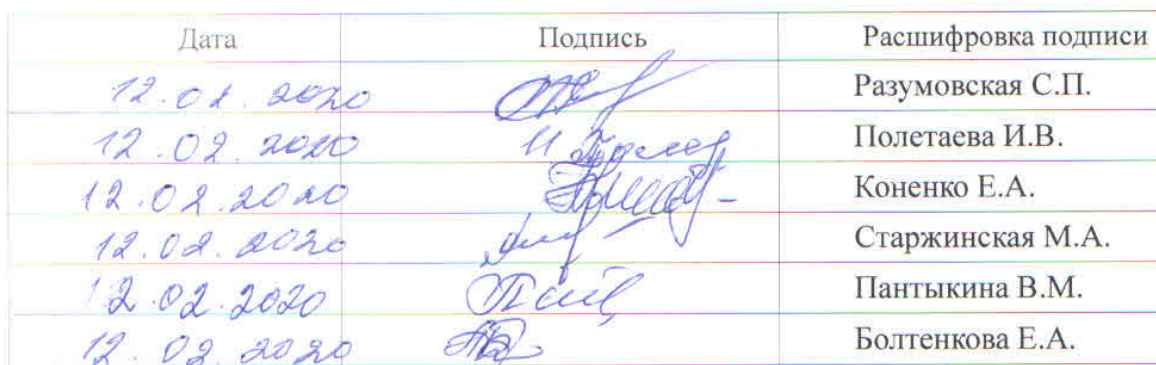 Дата Подпись Расшифровка подписи
12.02.2020 Разумовская С.П.
12.02.2020 Полетаева И.В.
12.02.2020 Коненко Е.А.
12.02.2020 Старжинская М.А.
12.02.2020 Пантыкина В.М.
12.02.2020 Болтенкова Е.А.